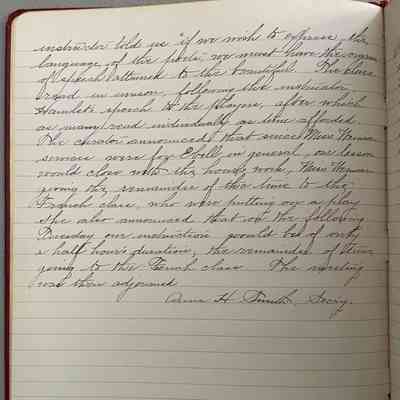 instructor told us "if we wish to express the
language of the poets, we must have the organs
of speech attuned to the beautiful. The class
read in unison, following the instructor,
Hamlet's speech to the Players, after which
as many read individually as time afforded.
The curator announced that since Miss
services were for Ebell in general, our lesson
would close with the hour's work, Miss
giving the remainder of the time to the
French class, who were putting on a play.
She also announced that on the following
Tuesday our instruction would be of only
a half hour's duration, the remainder of time
going to the French class. The meeting
was then adjourned
Anna H. Smith, Secy.